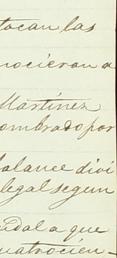 tocan las
nocieron a
Martinez
ombrado por
balance divi
legal segun
udal a que
uatrocien-